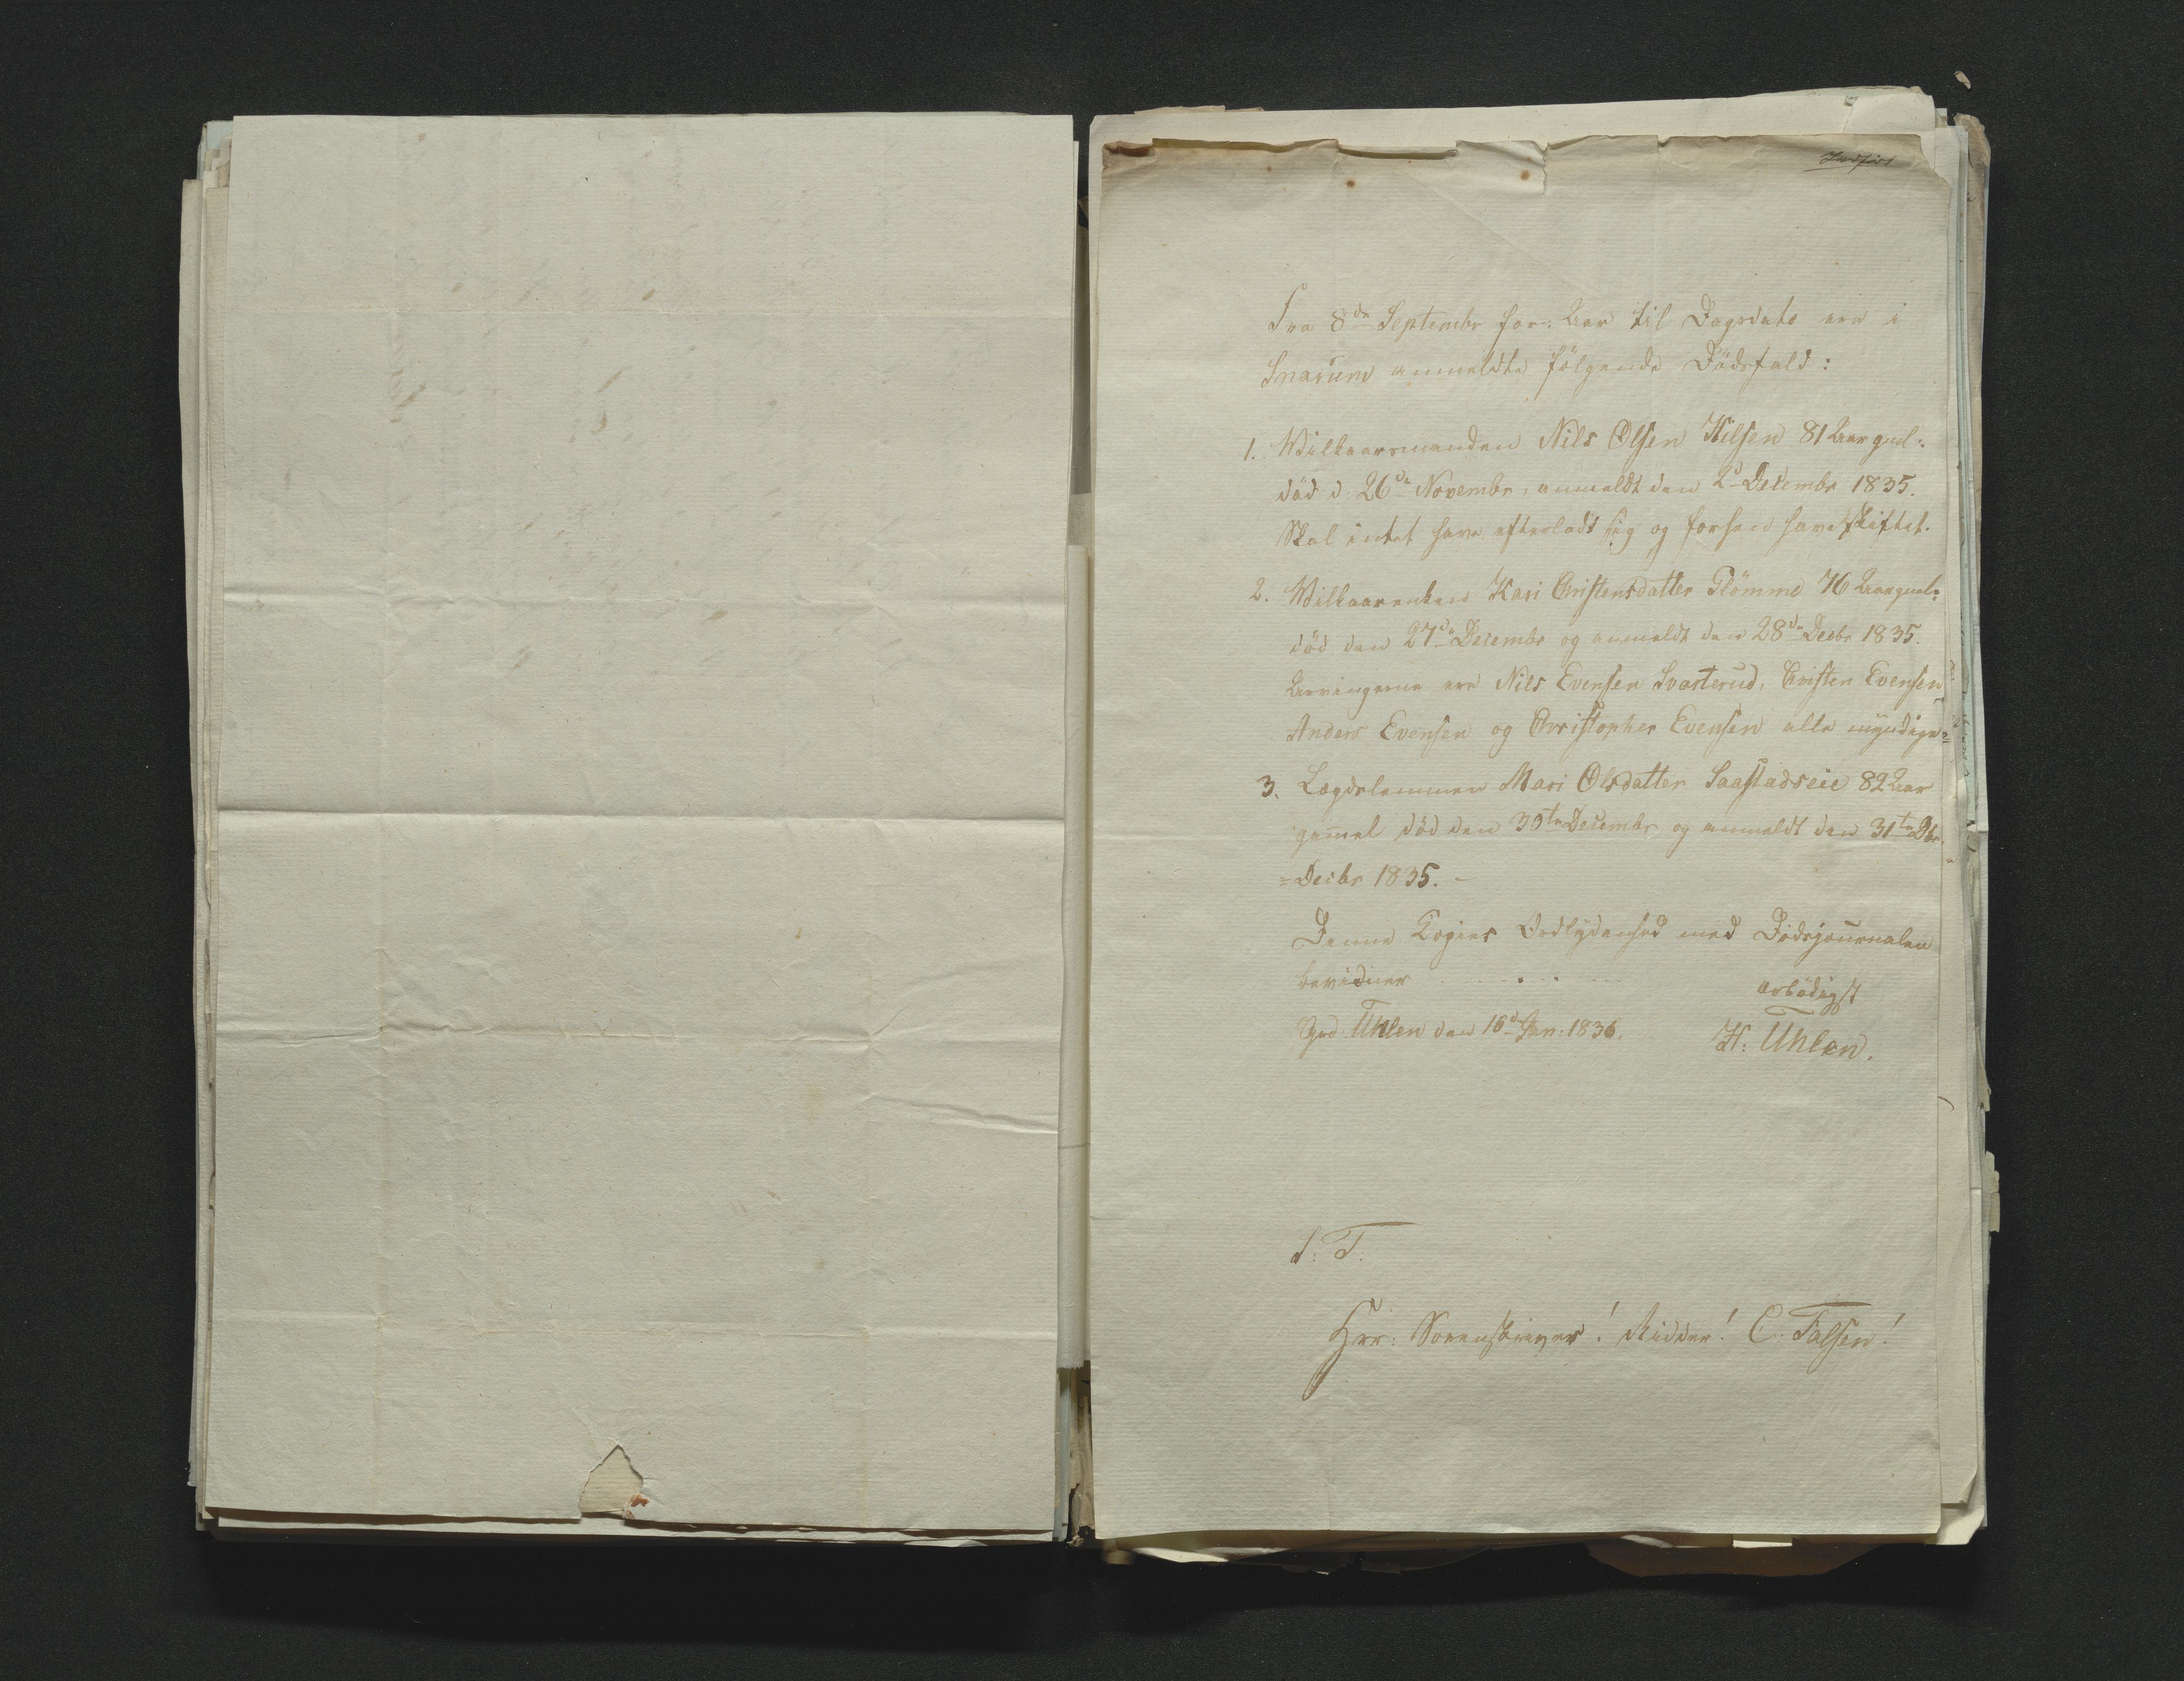 Indført
Fra 8de Septembr for: Aar til Dagsdato ere i
Snarum anmeldte følgende Dødsfald:
1. Wilkaarsmanden Nils Olsen Hilsen 81 Aar gml:
død d: 26de Novembr, anmeldt den 2d Decembr 1835.
Skal intet have efterladt sig og forhen have skiftet.
2. Wilkaarenken Kari Christensdatter Glömme 76 Aar gml:
død den 27de Decembr og anmeldt den 28de Decbr 1835.
Arvingerne ere Nils Evensen Svarterud, Cristen Evensen
Anders Evensen og Christopher Evensen alle myndige=
3. Lægdslemmen Mari Olsdatter Saastadseie 82 Aar
gamel død den 30te Decembr og anmeldt den 31te Dbr.
=Decbr 1835. -
Denne Copies Ordlydenhed med Dødsjournalen
bevidner . . . .
ærbødigst
Grd: Uhlen den 16d Jan: 1836.
H: Uhlen.
S: T:
Hrr: Sorenskriver! Ridder! C: Falsen!